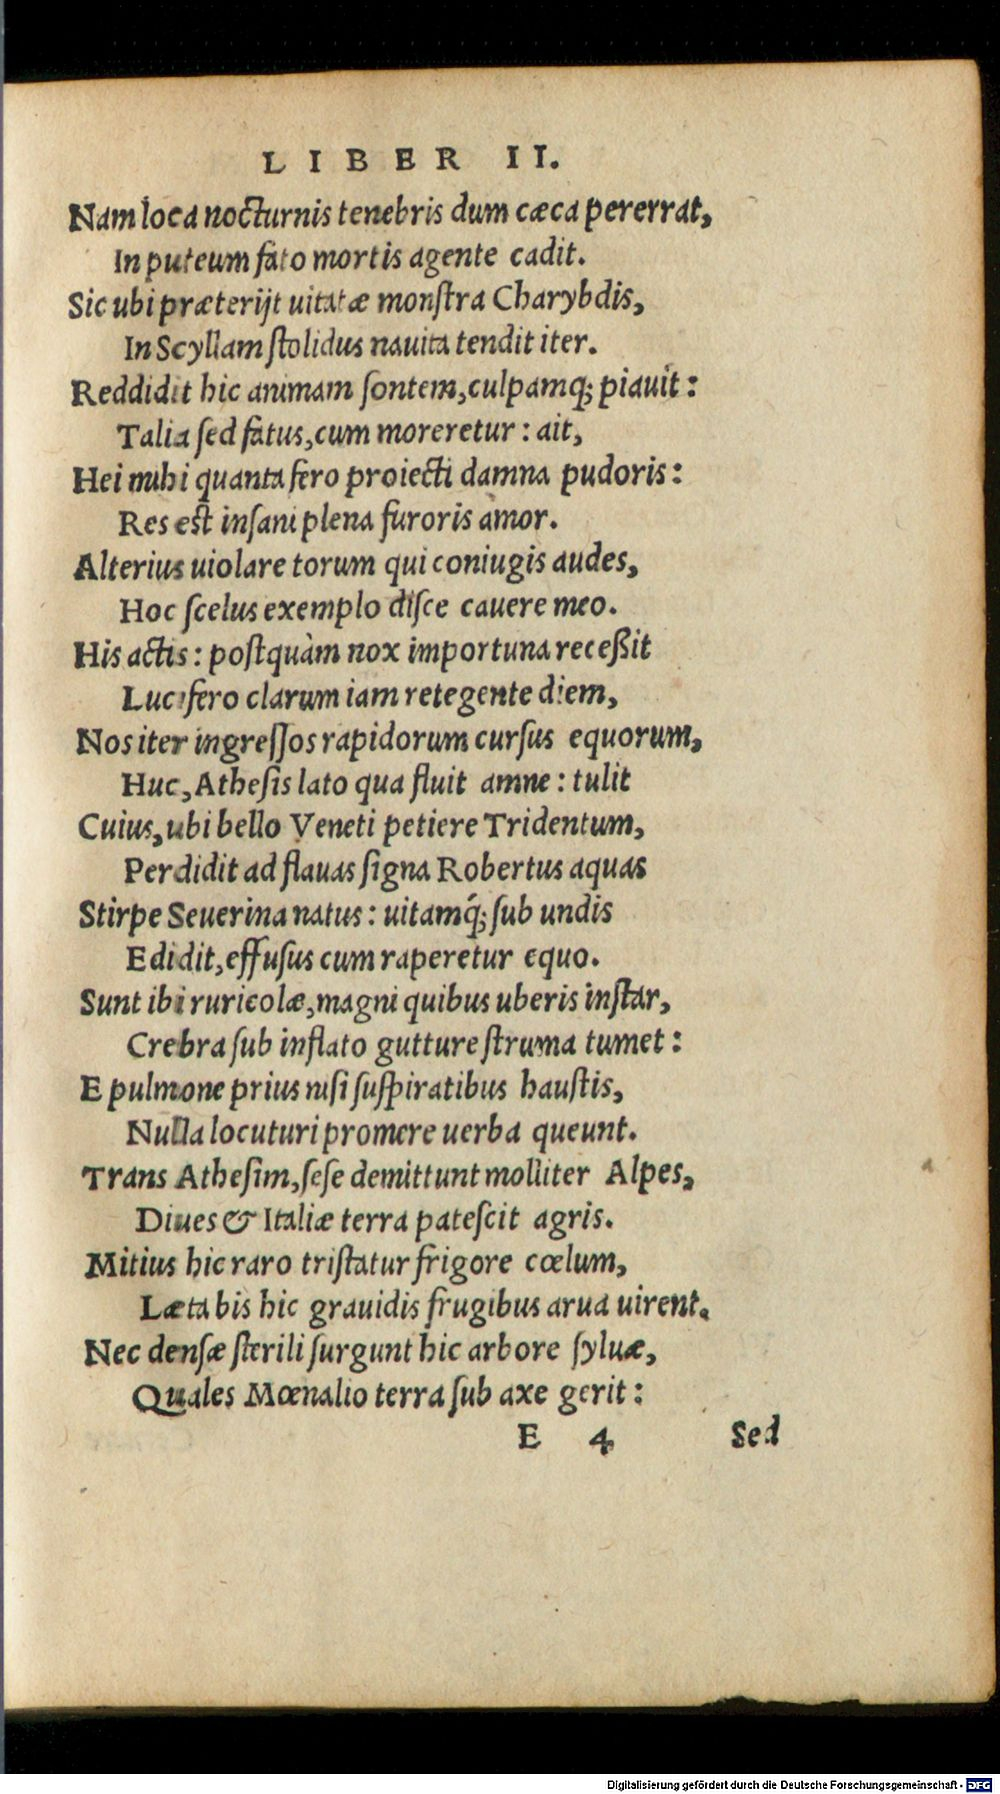 LIBER II.
Nam loca nocturnis tenebris dum cæca pererrat,
In puteum fato mortis agente cadit.
Sic ubi præterijt uitatæ monſtra Charybdis,
In Scyllam ſtolidus nauita tendit iter.
Reddidit hic animam ſontem, culpamq́; piauit:
Talia ſed fatus, cum moreretur: ait,
Hei mihi quanta fero proiecti damna pudoris:
Res est inſani plena furoris amor.
Alterius uiolare torum qui coniugis audes,
Hoc ſcelus exemplo diſce cauere meo.
His actis: poſtquàm nox importuna receßit
Lucifero clarum iam retegente diem,
Nos iter ingreſſos rapidorum curſus equorum,
Huc, Atheſis lato qua fluit amne: tulit
Cuius, ubi bello Veneti petiere Tridentum,
Perdidit ad flauas ſigna Robertus aquas
Stirpe Seuerina natus: uitamq́; ſub undis
Edidit, effuſus cum raperetur equo.
Sunt ibi ruricolæ, magni quibus uberis inſtar,
Crebra ſub inflato gutture ſtruma tumet:
E pulmone prius niſi ſuſpiratibus hauſtis,
Nulla locuturi promere uerba queunt.
Trans Atheſim, ſeſe demittunt molliter Alpes,
Diues & Italiæ terra pateſcit agris.
Mitius hic raro triſtatur frigore cœlum,
Læta bis hic grauidis frugibus arua uirent.
Nec denſæ ſterili ſurgunt hic arbore ſyluæ,
Quales Mœnalio terra ſub axe gerit:
E 4 Sed
Digitalisierung gefördert durch die Deutsche Forschungsgemeinschaft - DFG